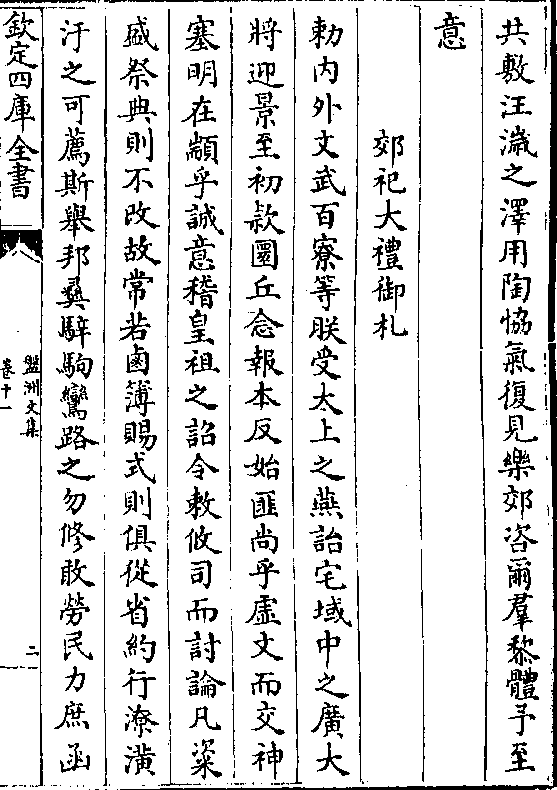 共敷汪濊之澤用陶恊氣復見樂郊咨爾羣黎體予至
意
郊祀大禮御札
勅内外文武百寮等朕受太上之燕詒宅域中之廣大
將迎景至初款圜丘念報本反始匪尚乎虚文而交神
塞明在顓乎誠意稽皇祖之詔令敕攸司而討論凡粢
盛祭典則不改故常若鹵簿賜式則俱從省約行潦潢
汙之可薦斯舉邦彛騂駒鸞路之勿修敢勞民力庶函
欽定四庫全書
盤洲文集
卷十一
二